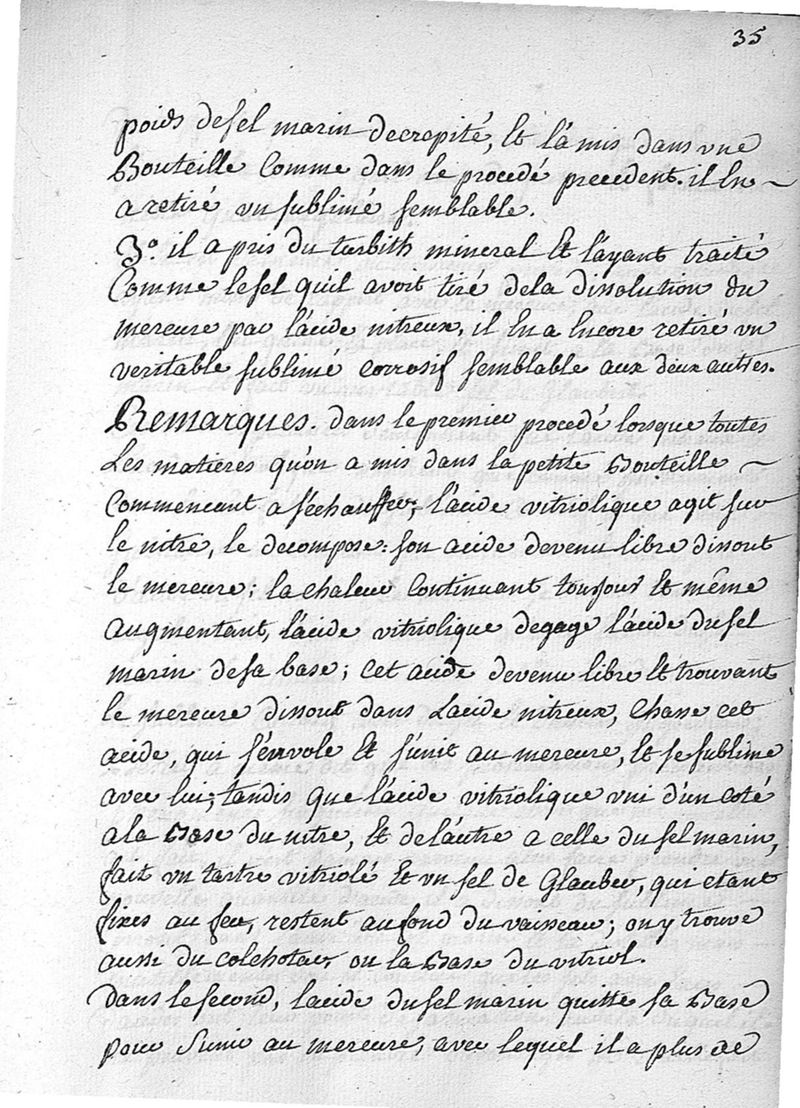 35
poids de sel marin decrepité, et l'a mis dans une
Bouteille Comme dans le procedé precedent. il En
a retiré un sublimé semblable.
3.° il a pris du turbith mineral Et l'ayant traité
Comme le sel qu'il avoit tiré de la dissolution du
mercure par l'acide nitreux, il En a Encore retiré un
veritable sublimé corrosif semblable aux deux autres.
Remarques. dans le premier procedé lorsque toutes
Les matieres qu'on a mis dans la petite Bouteille
Commencent a s'échauffer; l'acide vitriolique agit sur
le nitre, le decompose: son acide devenu libre dissout
le mercure; la chaleur Continuant toujours Et même
augmentant, l'acide vitriolique degage l'acide du sel
marin de sa base; Cet acide devenu libre Et trouvant
le mercure dissout dans L'acide nitreux, Chasse cet
acide, qui s'envole Et s'unit au mercure, Et se sublime
avec lui; tandis que l'acide vitriolique uni d'un coté
a la Base du nitre, Et de l'autre a celle du sel marin,
fait un tartre vitriolé Et un sel de Glauber, qui etant
fixes au feu, restent au fond du vaisseau; on y trouve
aussi du colchotar ou la Base du vitriol.
Dans le second, l'acide du sel marin quitte sa Base
pour s'unir au mercure, avec lequel il a plus de